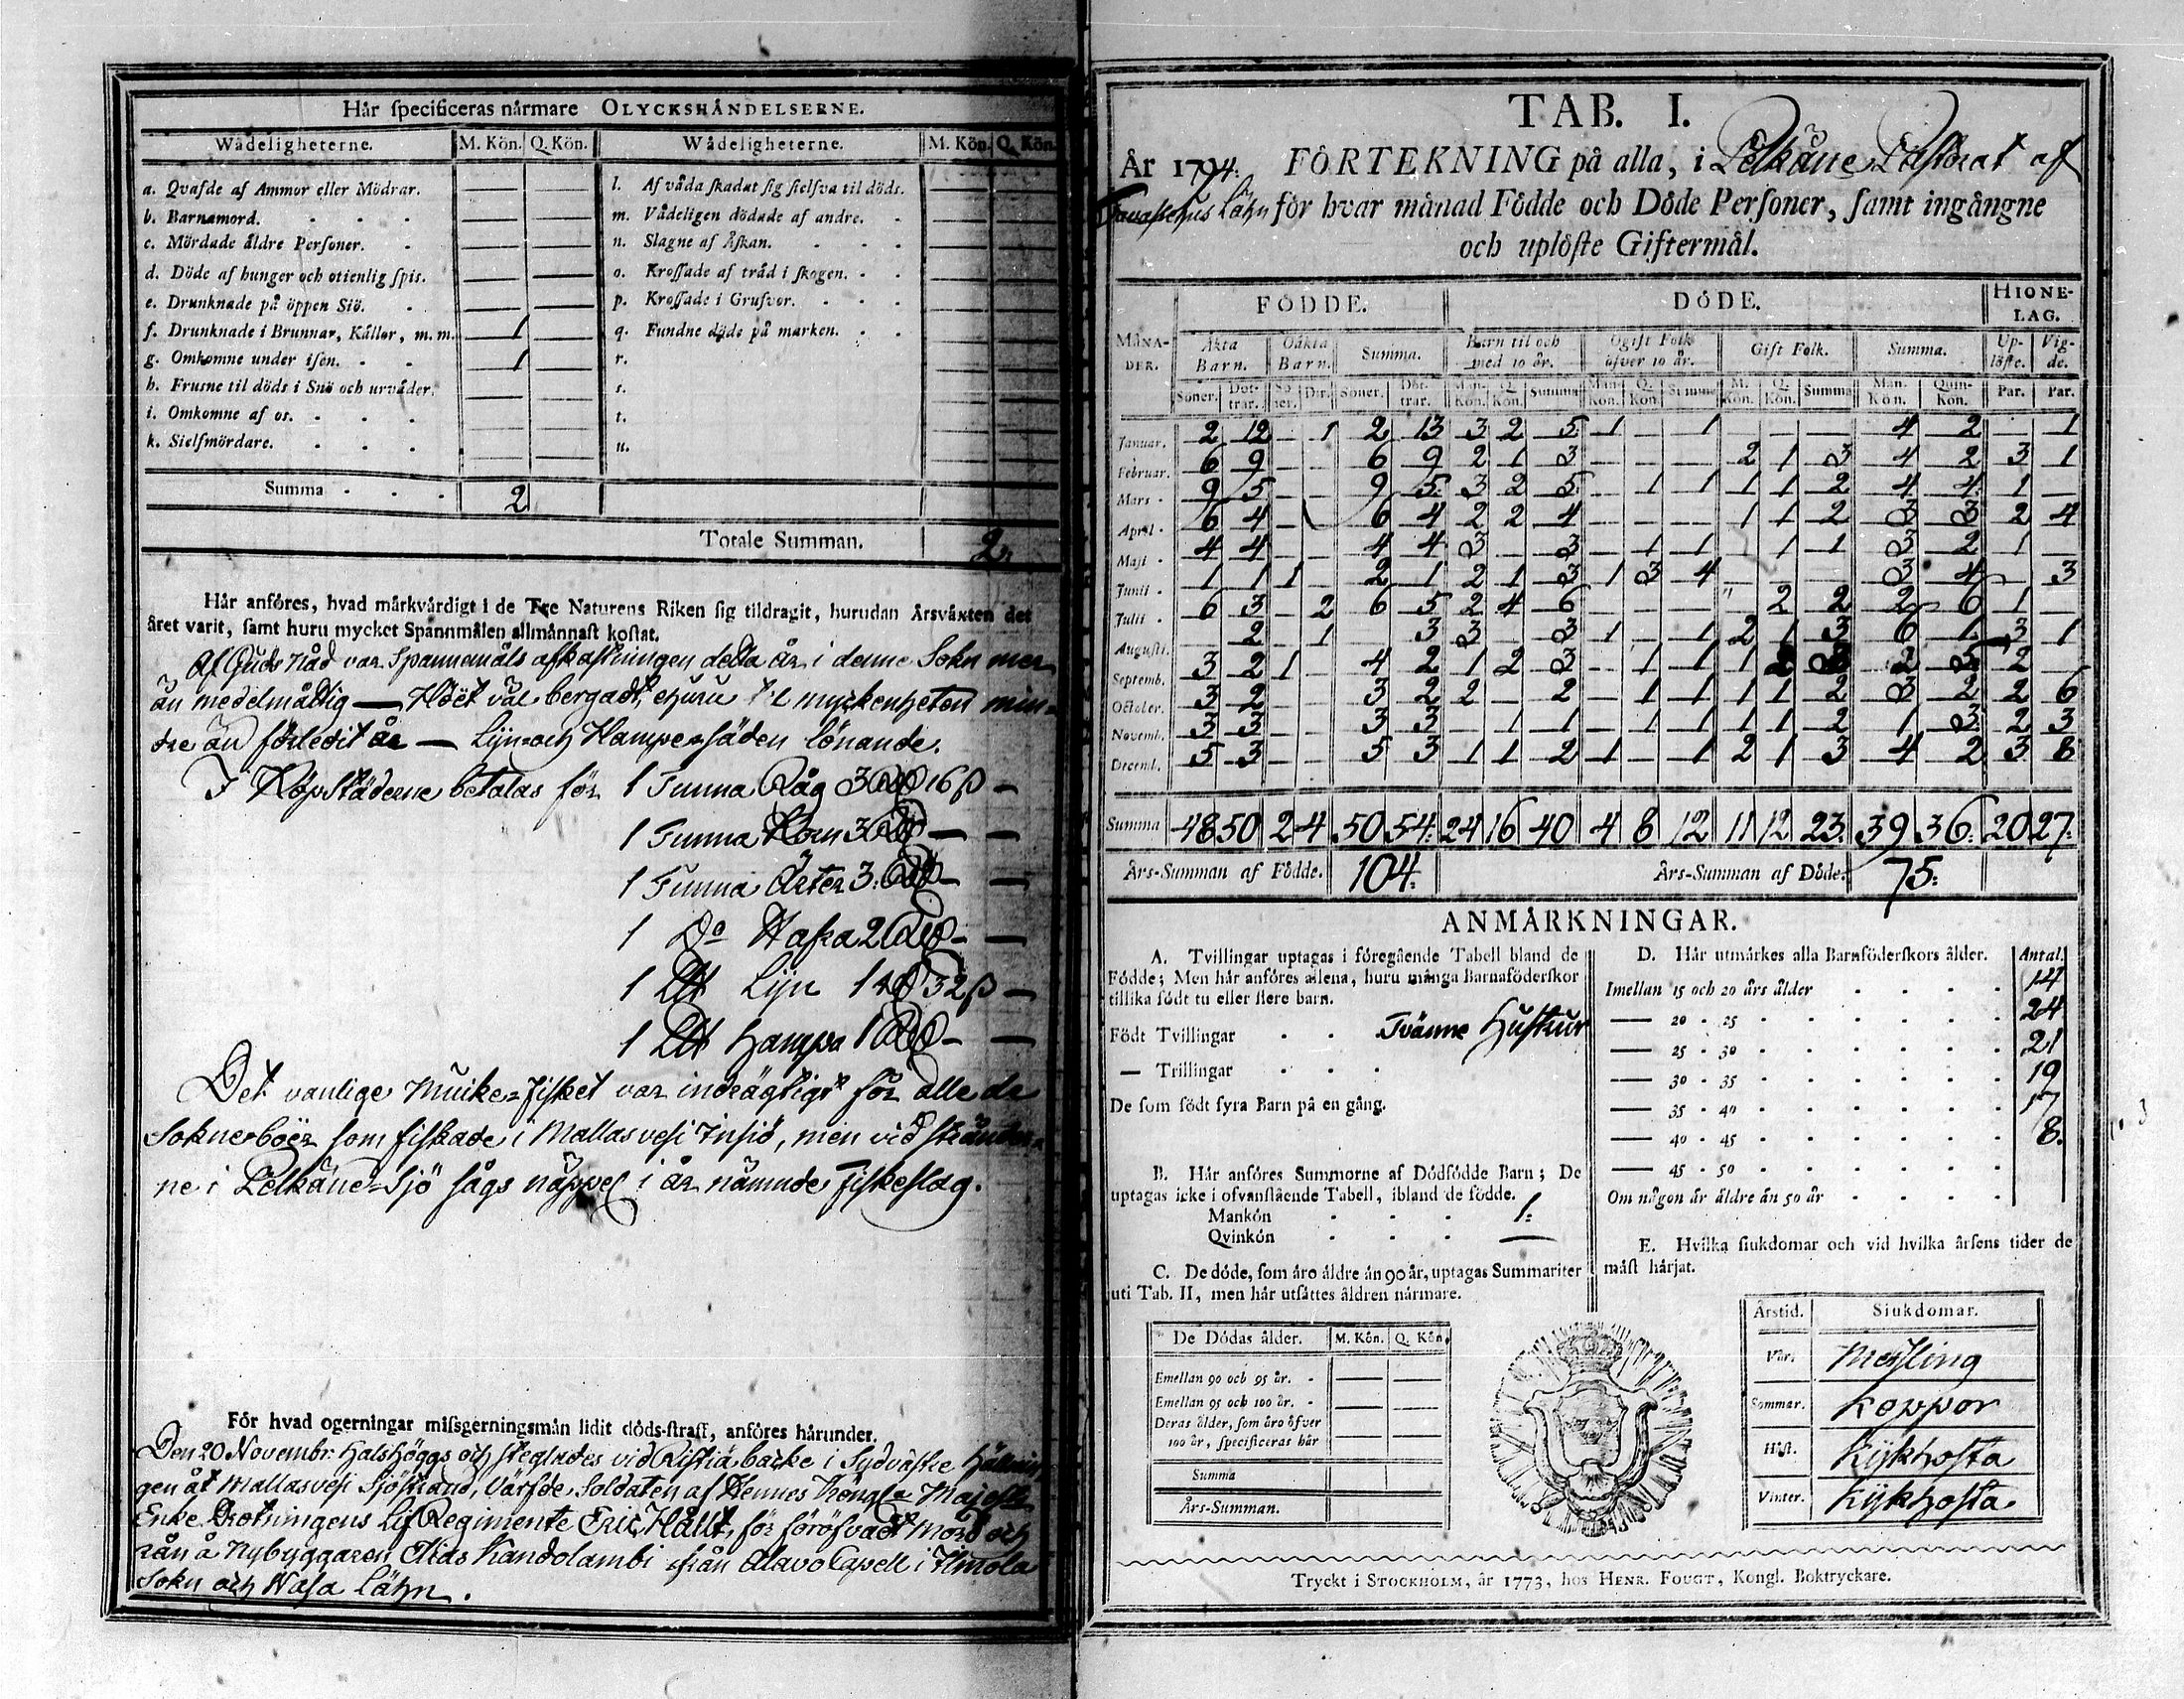 Här specificeras närmare OLYCKSHÄNDELSERNE.
Wådeligheterne. M. Kön. Q. Kön. Wådeligheterne. M. Kön. Q. Kön.
a. Qvafde af Ammor eller Mödrar. — — l. Af våda skadat sig sielfva til döds. — —
b. Barnamord. — — m. Vådeligen dödade af andre. — —
c. Mördade äldre Personer. — — n. Slagne af Åskan. — —
d. Döde af hunger och otienlig spis. — — o. Krossade af träd i skogen. — —
e. Drunknade på öppen Siö. — — p. Krossade i Grufvor. — —
f. Drunknade i Brunnar, Källor, m. m. 1 — q. Fundne döde på marken. — —
g. Omkomne under isen. 1 — r. — —
h. Frusne til döds i Snö och urväder. — — s. — —
i. Omkomne af os. — — t. — —
k. Sielfmördare. — — u. — —
Summa 2
Totale Summan. 2.
Här anföres, hvad märkvärdigt i de Tre Naturens Riken sig tildragit, hurudan Årsväxten det
året varit, samt huru mycket Spannmålen allmännast kostat.
Af Guds Nåd var Spannemåls afkastningen detta år i denne Sokn mer
än medelmåttig — Höet väl bergadt, ehuru til myckenheten min-
dre än förledit år — Lijn och Hampe-säden lönande.
I Köpstäderne betalas för 1 Tunna Råg 3 Rd 16 ß —
1 Tunna Korn 3 Rd — —
1 Tunna Ärter 3. Rd — —
1 Do Hafra 2 Rd — —
1 Ltt Lijn 1 Rd 32 ß —
1 Ltt Hampa 1 Rd — —
Det vanlige Muike-fisket var indrägtigt för alle de
Sokneboer som fiskade i Mallasvesi Insiö, men vid stränder-
ne i Pelkäne-Sjö sågs näppel i år nämnde fiskeslag.
För hvad ogerningar missgerningsmän lidit döds-straff, anföres härunder.
Den 20 Novembr. halshöggs och steglades vid Ristiä backe i Sydvästre
gen åt Mallasvesi Sjöstrand, Värfde Soldaten af Hennes Kongl. Majestts
Enke Drotningens Lif Regimente Eric Hållt, för föröfvadt mord och
rån å Nybyggaren Elias Kandolambi från Alavo Capell i Ilmola
Sokn och Wasa Lähn.
TAB. I.
År 1794. FÖRTEKNING på alla, i Pelkäne Pastorat af
Tavastehus Lähn för hvar månad Födde och Döde Personer, samt ingångne
och uplöste Giftermål.
FÖDDE. DÖDE. HIONE-
LAG.
MÅNA-
DER. Äkta
Barn. Oäkta
Barn. Summa. Barn til och
med 10 år. Ogift Folk
öfver 10 år. Gift Folk. Summa. Up-
löste. Vig-
de.
Söner. Döt-
trar. Sö-
ner. Dtr. Söner. Döt-
trar. Man-
Kön. Q.
Kön. Summa Man
Kön. Q.
Kön. Summa M.
Kön. Q.
Kön. Summa Man.
Kön. Quin-
Kön. Par. Par.
Januar. 2 12 — 1 2 13 3 2 5 1 — 1 — — — 4 2 — 1
Februar. 6 9 — — 6 9 2 1 3 — — — 2 1 3 4 2 3 1
Mars 9 5 — — 9 5 3 2 5 — 1 1 1 1 2 4 4 1 —
April 6 4 — 6 4 2 2 4 — — — 1 1 2 3 3 2 4
Maji 4 4 — — 4 4 3 — 3 — 1 1 1 1 3 2 1 —
Junii 1 1 1 — 2 1 2 1 3 1 3 4 — — — 3 4 — 3
Julii 6 3 — 2 6 5 2 4 6 — — — " 2 2 2 6 1
Augusti. 2 — 1 3 3 — 3 1 — 1 2 1 3 6 1 3 1
Septemb. 3 2 1 — 4 2 1 2 3 — 1 1 1 2 3 2 5 2
October. 3 2 — — 3 2 2 — 2 — 1 1 1 1 2 3 2 2 6
Novemb. 3 3 — — 3 3 — 1 1 — 1 1 1 1 2 1 3 2 3
Decemb. 5 3 — — 5 3 1 1 2 1 — 1 2 1 3 4 2 3 8
Summa 48 50 2 4 50 54 24 16 40 4 8 12 11 12 23 39 36 20 27
Års-Summan af Födde. 104. Års-Summan af Döde. 75.
ANMÄRKNINGAR.
A. Tvillingar uptagas i föregående Tabell bland de
Födde; Men här anföres allena, huru många Barnaföderskor
tillika födt tu eller flere barn.
Födt Tvillingar Tvänne Hustrur
— Trillingar
De som födt fyra Barn på en gång.
B. Här anföres Summorne af Dödfödde Barn; De
uptagas icke i ofvanstående Tabell, ibland de födde.
Mankön 1.
Qvinkön —
C. De döde, som äro äldre än 90 år, uptagas Summariter
uti Tab. II, men här utsättes åldren närmare.
De Dödas ålder. M. Kön. Q. Kön.
Emellan 90 och 95 år. — —
Emellan 95 och 100 år. — —
Deras ålder, som äro öfver
100 år, specificeras här — —
Summa
Års-Summan.
D. Här utmärkes alla Barnföderskors ålder. Antal.
Imellan 15 och 20 års ålder 14
— 20 - 25 24
— 25 - 30 21
— 30 - 35 19
— 35 - 40 17
— 40 - 45 8.
— 45 - 50
Om någon är äldre än 50 år
E. Hvilka siukdomar och vid hvilka årsens tider de
mäst härjat.
Årstid. Siukdomar.
Vår. Messling
Sommar. Koppor
Höst. Kijkhosta
Vinter. Kijkhosta.
Tryckt i STOCKHOLM, år 1773, hos HENR. FOUGT, Kongl. Boktryckare.